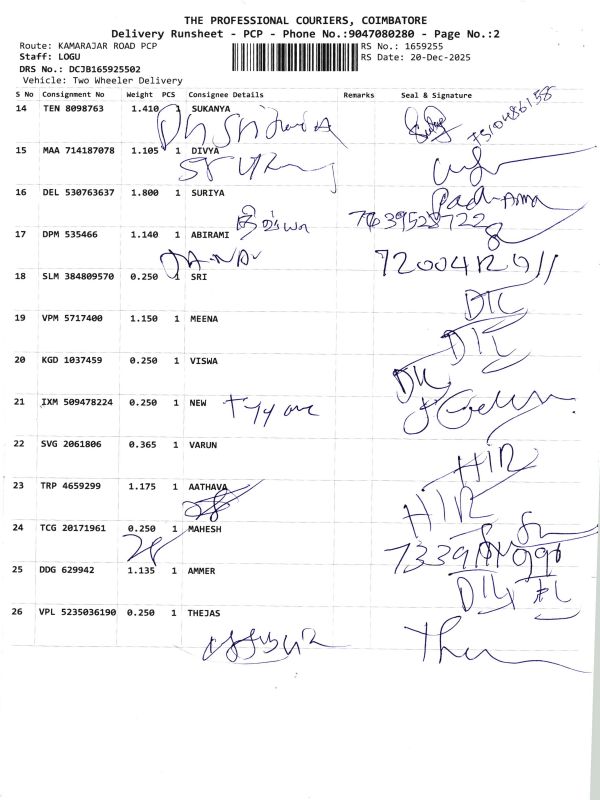 THE PROFESSIONAL COURIERS, COIMBATORE
Delivery Runsheet - PCP - Phone No.:9047080280 - Page No.:2
Route: KAMARAJAR ROAD PCP RS No.: 1659255
Staff: LOGU RS Date: 20-Dec-2025
DRS No.: DCJB165925502
Vehicle: Two Wheeler Delivery
S No Consignment No Weight PCS Consignee Details Remarks Seal & Signature
14 TEN 8098763 1.410 1 SUKANYA
7510486138
15 MAA 714187078 1.105 1 DIVYA
16 DEL 530763637 1.800 1 SURIYA
Padma
17 DPM 535466 1.140 1 ABIRAMI
18 SLM 384809570 0.250 1 SRI
DIL
19 VPM 5717400 1.150 1 MEENA
DIL
20 KGD 1037459 0.250 1 VISWA
DIL
21 IXM 509478224 0.250 1 NEW
22 SVG 2061806 0.365 1 VARUN
HIR
23 TRP 4659299 1.175 1 AATHAVA
HIR
24 TCG 20171961 0.250 1 MAHESH
25 DDG 629942 1.135 1 AMMER
DIL
26 VPL 5235036190 0.250 1 THEJAS